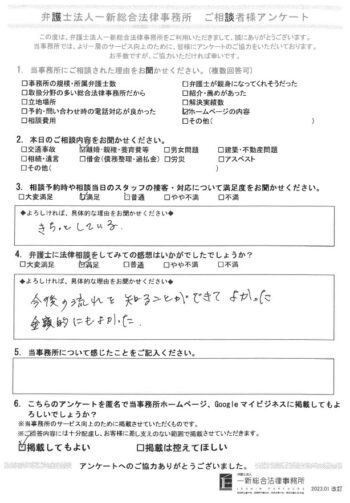 弁護士法人一新総合法律事務所　ご相談者様アンケート
この度は、弁護士法人一新総合法律事務所をご利用いただきまして、誠にありがとうございます。
当事務所では、より一層のサービス向上のために、皆様にアンケートのご協力をいただいております。
お手数ですが、ご協力いただければ幸いです。
1．当事務所にご相談された理由をお聞かせください。(複数回答可)
□事務所の規模・所属弁護士数　□弁護士が親身になってくれそうだった
□取扱分野の多い総合法律事務所だから　□紹介・薦めがあった
□立地場所　□解決実績数
□予約・問い合わせ時の電話対応が良かった　☑ホームページの内容
□相談費用　□その他(　)
2．本日のご相談内容をお聞かせください。
□交通事故　☑離婚・親権・養育費等　□男女問題　□建築・不動産問題
□相続・遺言　□借金(債務整理・過払金)　□労災　□アスベスト
□その他(　)
3．相談予約時や相談当日のスタッフの接客・対応について満足度をお聞かせください。
□大変満足　☑満足　□普通　□やや不満　□不満
◆よろしければ、具体的な理由をお聞かせください◆
きちっとしている.
4．弁護士に法律相談をしてみての感想はいかがでしたでしょうか？
□大変満足　☑満足　□普通　□やや不満　□不満
◆よろしければ、具体的な理由をお聞かせください◆
今後の流れを知ることができてよかった
金額的にもよかった.
5．当事務所について感じたことをご記入ください。
6．こちらのアンケートを匿名で当事務所ホームページ、Googleマイビジネスに掲載してもよ
ろしいでしょうか？
※当事務所のサービス向上のために掲載させていただくものです。
※ご回答内容には十分配慮し、お客様に差し支えのない範囲で掲載させていただきます。
☑掲載してもよい　□掲載は控えてほしい
アンケートへのご協力ありがとうございました。
弁護士法人
一新総合法律事務所
2023.01 改訂